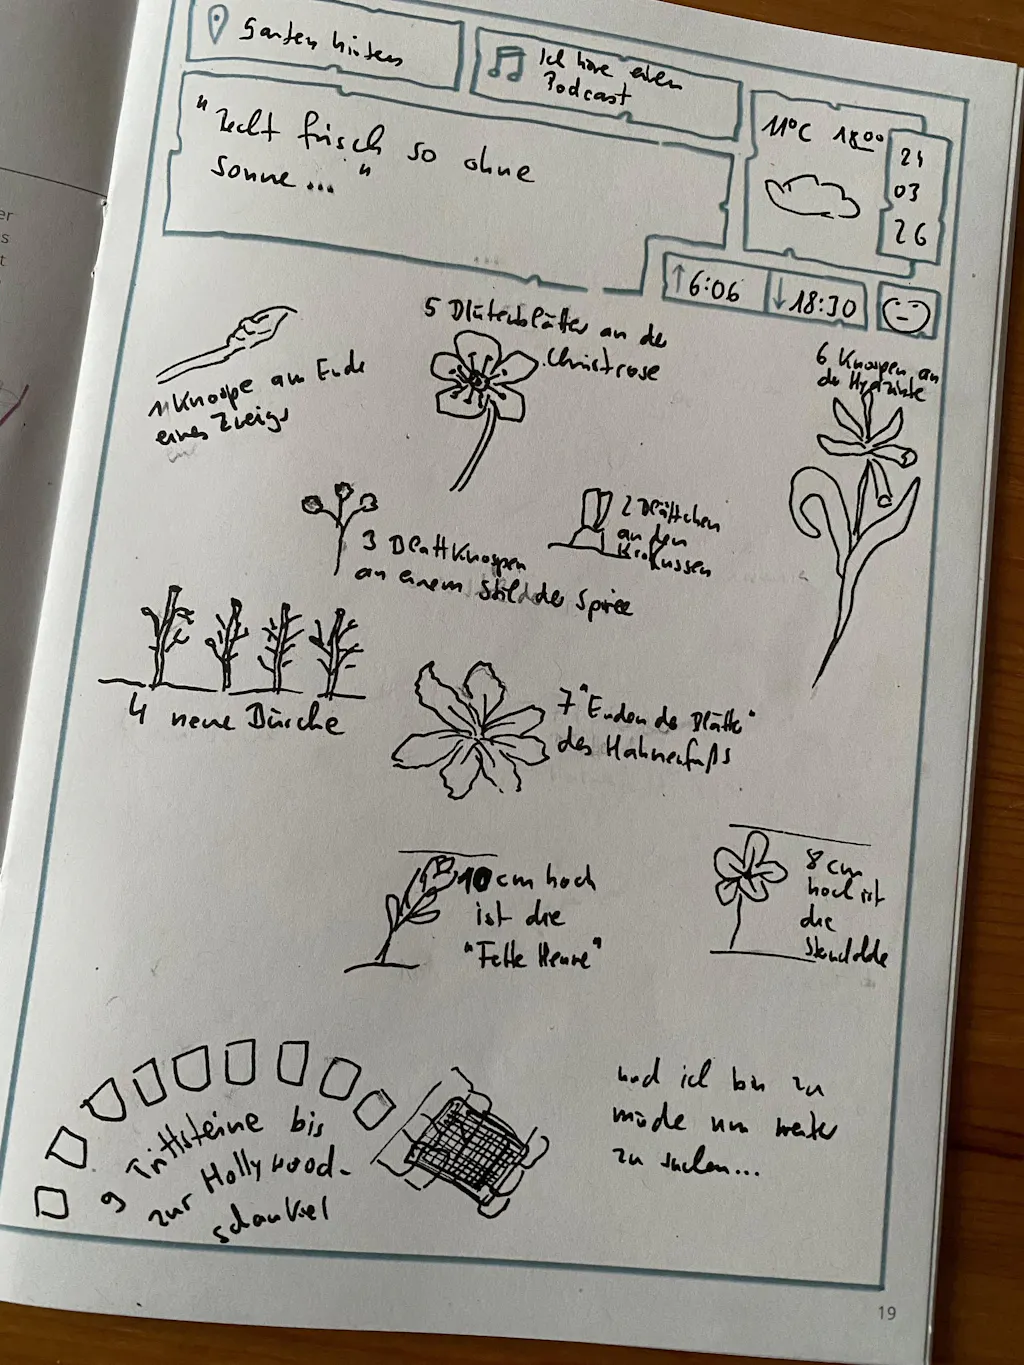 Garten hinten
Ich höre einen
Podcast
"Recht frisch so ohne
Sonne..."
11°C 18:00
24
03
26
↑6:06
↓18:30
5 Blütenblätter an der
Christrose
6 Knospen an
der Hyazinte
1 Knospe am Ende
eines Zweigs
2 Blättchen
an den
Krokussen
3 Blattknospen
an einem Stil der Spiree
4 neue Büsche
7 "Enden der Blätter"
des Hahnenfußs
10 cm hoch
ist die
"Fette Henne"
8 cm
hoch ist
die
Sterndolde
9 Trittsteine bis
zur Hollywood-
schaukel
und ich bin zu
müde um weiter
zu suchen...
19